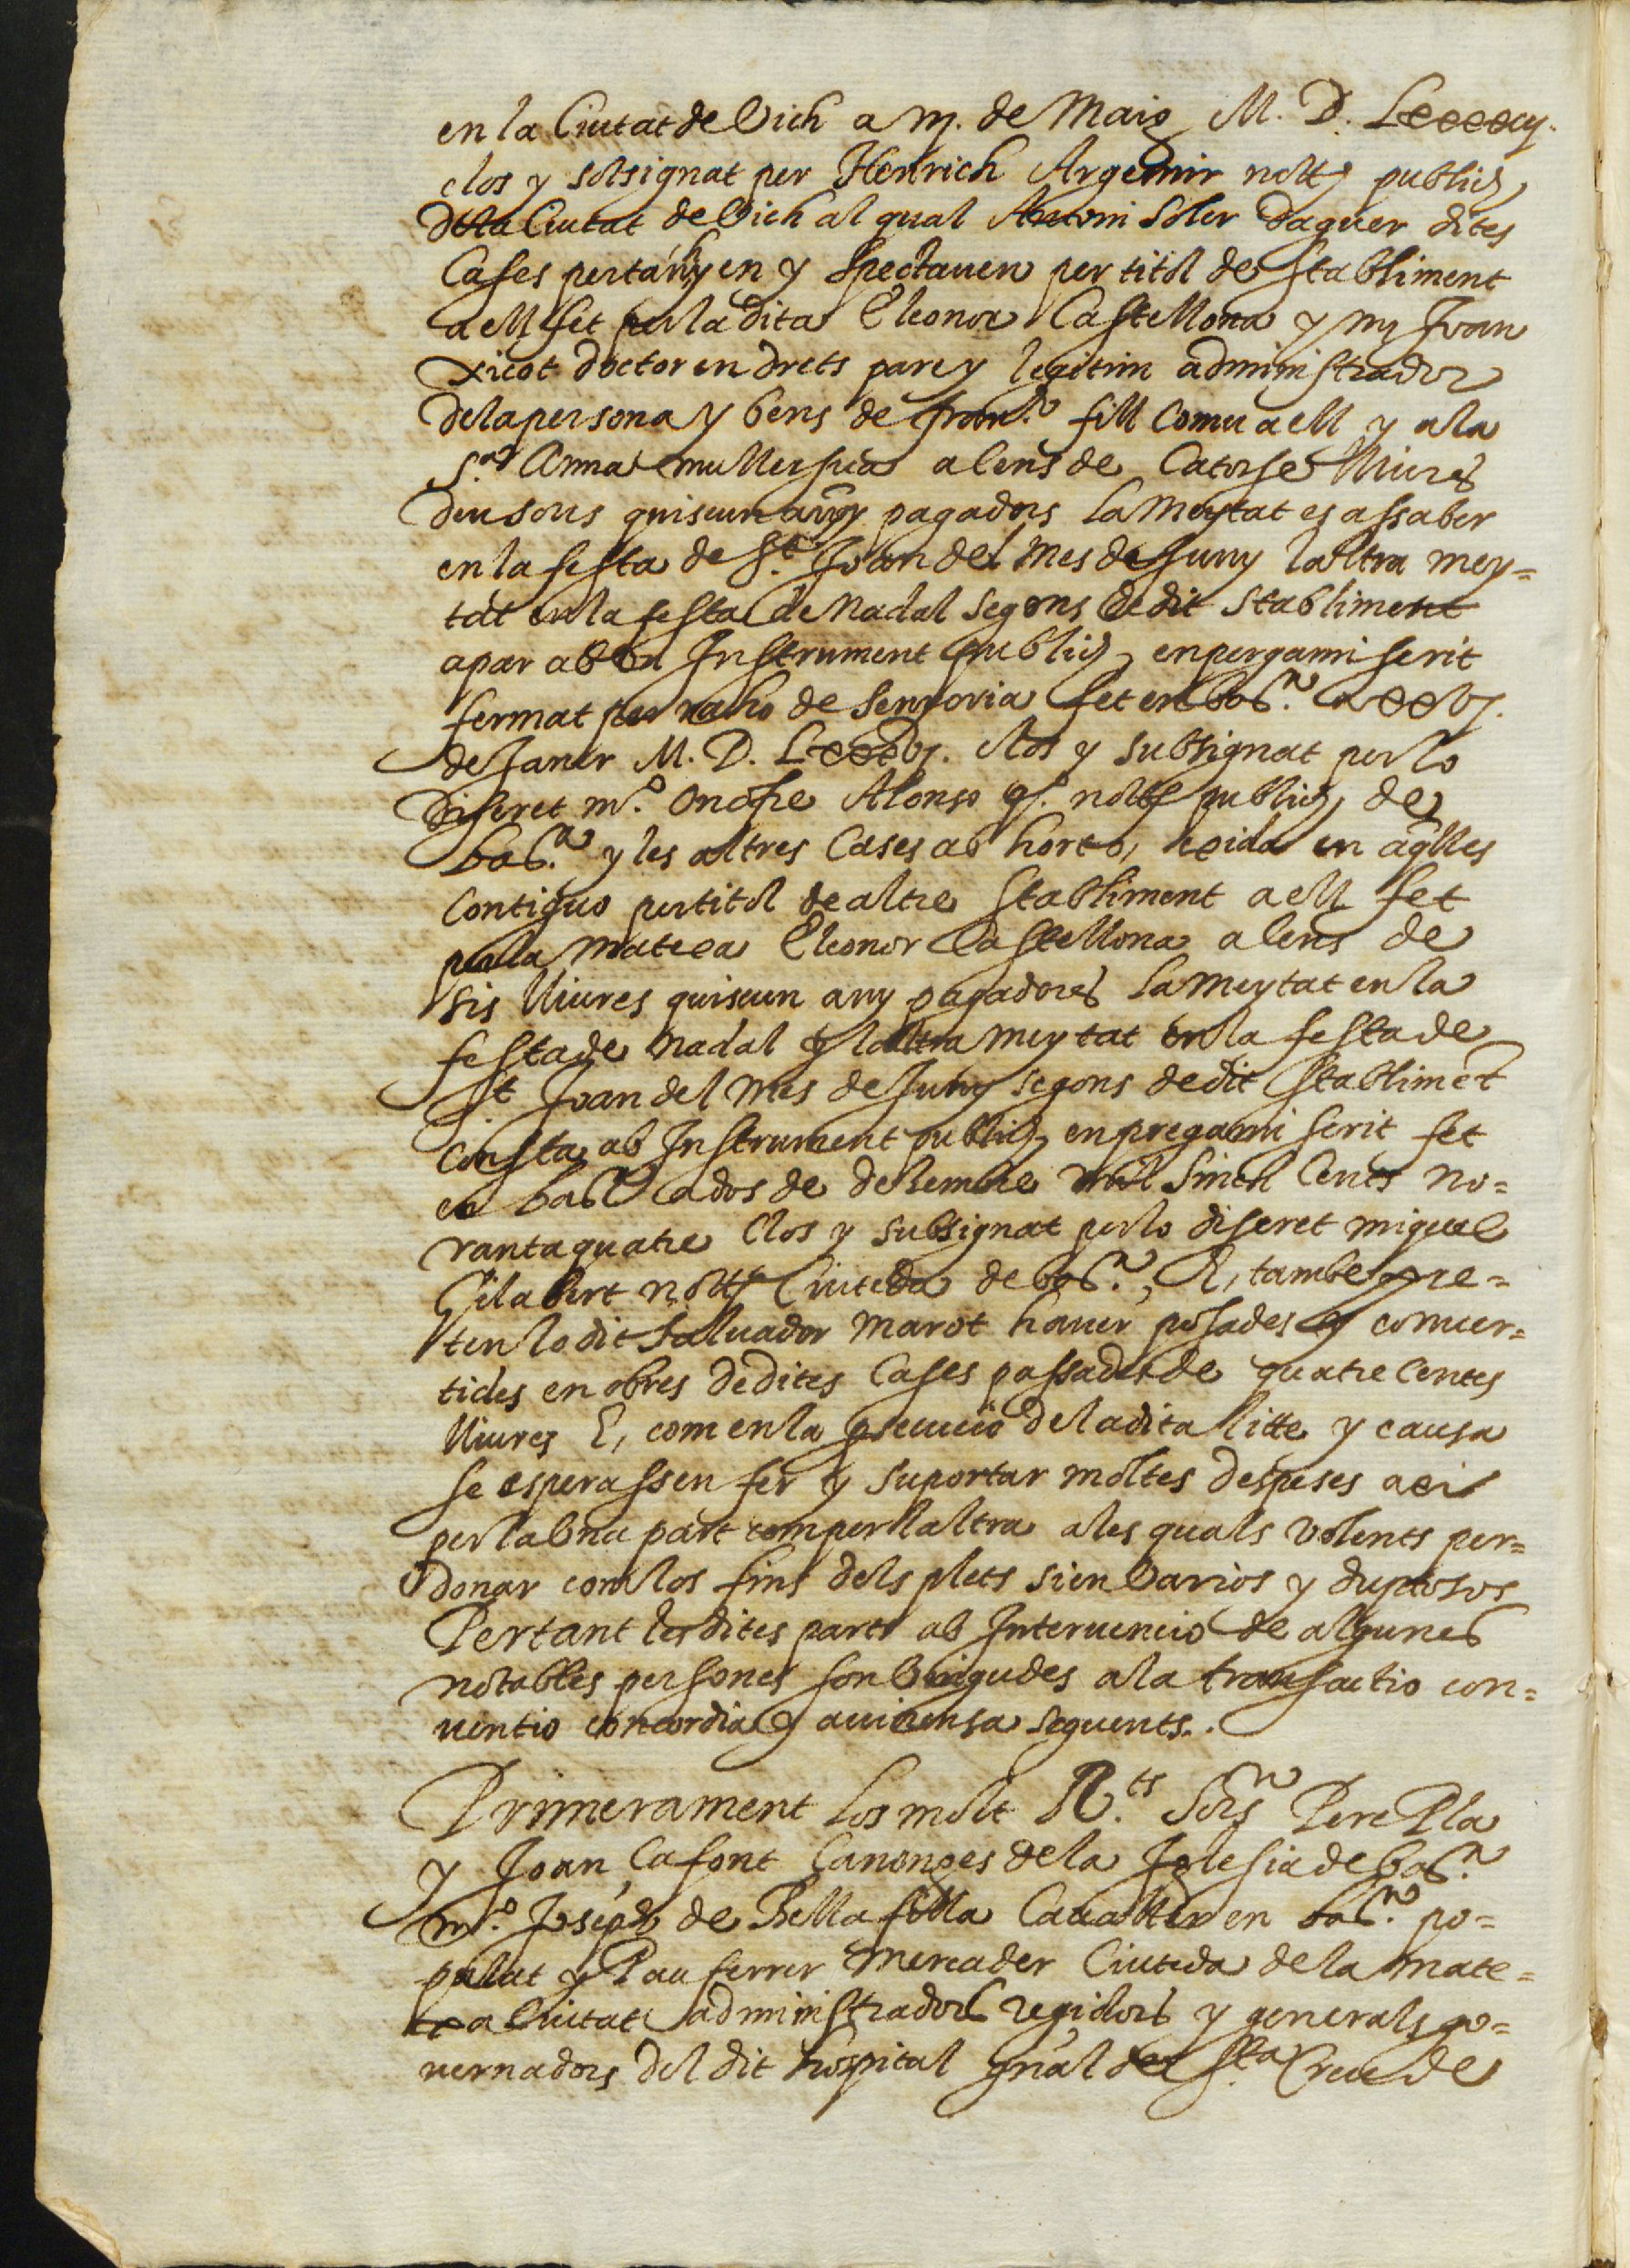 en la Ciutat de Vich a iij. de Maig M. D. Lxxxxij.
clos y sotsignat per Henrich Argemir nott. publich
dela Ciutat de Vich al qual Antoni Soler Daguer dites
Cases pertanyen y spectaven per titol de stabliment
a ell fet per la dita Eleonor Castellona y mº Joan
xicot doctor en drets pare y legitim administrador
dela persona y bens de fran.co fill comu a ell y ala
S.ra Anna muller sua a cens de Catorse lliures
deu sous quiscun any pagadors la meytat es assaber
en la festa de S.t Joan del mes de Juny laltra mey=
tat en la festa de Nadal segons de dit stabliment
apar ab un Instrument publich enpergami scrit
fermat per raho de senyoria fet en bar.na a xxvj.
de Janer M. D. Lxxxvj. clos y subsignat per lo
discret m.º Onofre Alonso q.º nott. publich de
bar.na y les altres Cases ab hort o, lexida en aqlles
contiguo per titol de altre stabliment a ell fet
per la matexa Eleonor Castellona a cens de
sis lliures quiscun any pagadores la meytat en la
festa de Nadal y laltra meytat en la festa de
S.t Joan del mes de Juny segons de dit stablimēt
consta ab Instrument publich enpregami scrit fet
en bar.na ados de dehembre mil sinch Cents no=
rantaquatre Clos y subsignat per lo discret miquel
Gilabert nott. Ciuteda de bar.na, E, tambe pre=
ten lo dit Saluador Marot hauer posades y conuer=
tides en obres dedites Cases passades de quatre Centes
lliures E, com en la psecucio dela dita litte y causa
se esperassen fer y suportar moltes despeses axi
per la una part com per laltra ales quals volents per=
donar com los fins dels plets sien varios y duptosos
Pertant les dites parts ab Interuencio de algunes
notables persones son vingudes ala transactio con=
uentio concordia y auinensa seguents..
Primerament los molt R.ts Sors Pere Pla
y Joan Çafont Canonges dela Iglesia de bar.na
m.º Joseph de Bellafilla Caualler en bar.na po=
pulat y Pau ferrer Mercader Ciuteda de la mate=
xa Ciutat administradors regidors y generals go=
uernadors del dit hospital gñal de S.ta Creu de